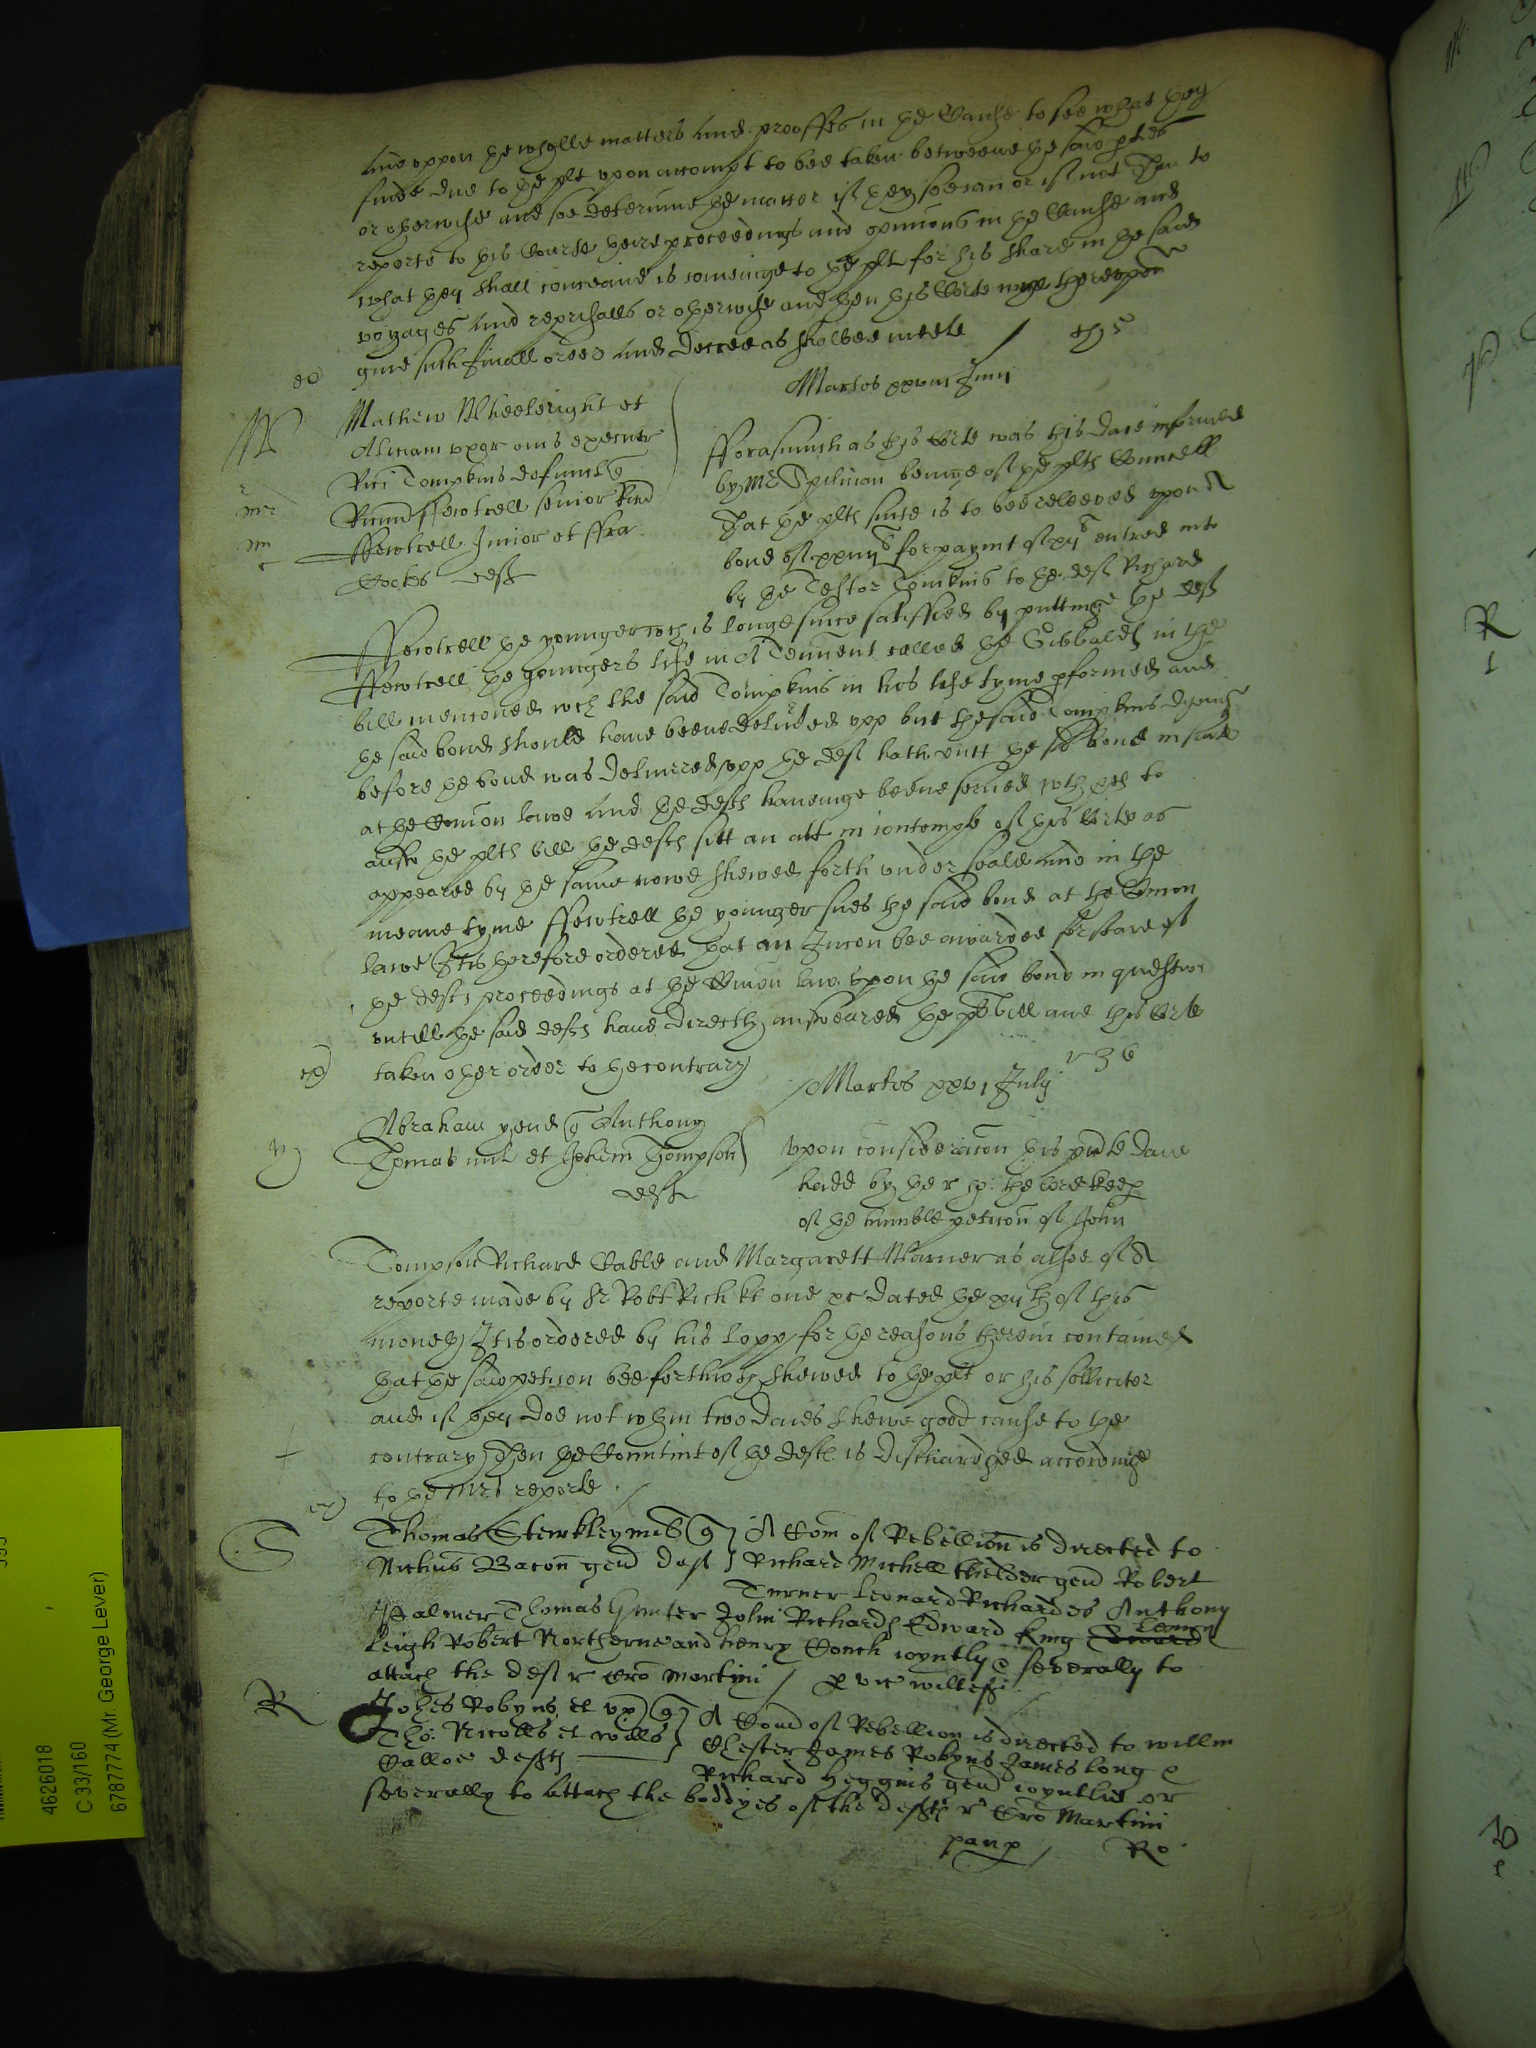 And uppon the wholle matters and prooffes in the Cause to see what they
finde due to the plt upon accompt to bee taken betweene the said pties
or otherwise and soe determine the matter if they soe can or if not then to
reporte to this Courte theire proceedings and opinions in the Cause and
what they shall conceave is cominge to the plt for his share in the said
voyages and reprisalls or otherwise and then this Corte thereupon
give such finall order and decree as shalbee meete
Martis xxviii Junii
Mathew Wheelright et
uxor eius
Rici Tompkins defuncti
Ffewtrell senior Ricd
Ffewtrell Junior et ffra
Cockes deft
Fforasmuch as this Corte was this daie informed
by Mr Spilman beinge of the plts Councell
That the plts suite is to bee releeved upon A
bond of for paymt of entred into
by the Testor Tomkins to the deft Richard
Ffewtrell the younger wch is longe since satisfied by puttinge the deft
Ffewtrell the youngers life in A Tenement called the Sibballs in the
bill menconed wch the said Tompkins in his life tyme pformed and
the said bond should have beene delivered upp but the said Tompkins dyeing
before the bond was delivered upp the deft hath putt the sd bond in suite
at the Comon lawe And the defts haveinge beene served wth to
the plts bill the defts sitt an att in contempt of this Corte as
appeared by the same nowe shewed forth under seale and in the
meane tyme Ffewtrell the younger sues the said bond at the Comon
lawe It is therefore ordered that an Junccon bee awarded for staie of
the defts proceedings at the Comon law upon the said bond in question
untill the said defts have directly answeared the plts bill and this Corte
taken other order to the contrary
Martis xxvi July
Abraham quer Anthony
Thomas mil et Johem Thompson
defts
Upon consideracon this pnte daie
hadd by the r ho: the lord keep
of the humble peticon of John
Tompson Richard Cable and Margarett Warner as alsoe of A
reporte made by Sr Robt Rich kt one &c dated the of this
moneth It is ordered by his lopp for the reasons therein contained
that the said peticon bee forthwth shewed to the plt or his solliciter
and if they doe not wthin two daies shewe good cause to the
contrary Then the Contempt of the defts is dischardged accordinge
to the Mrs reporte
Thomas Stewkley miles q A Com of Rebellion is directed to
Nichus Bacon gen deft Richard Michell thelder gen Robert
Turner Leonard Richardes Anthony
Palmer Thomas Hunter John Richards Edward King
Leigh Robert Northerne and Henry Couch ioyntly & severally to
attach the deft r Cro Martini
Johes Robyns et ux q A Comd of Rebellion is directed to willm
Tho: Nicolls et Chester James Robyns James Long &
Callow defts Richard Higgins gen ioyntlie or
severally to Attach the boddyes of the defts r Cro Martini
Ro
4626018
C 33/160
6787774 (Mr. George Lever)